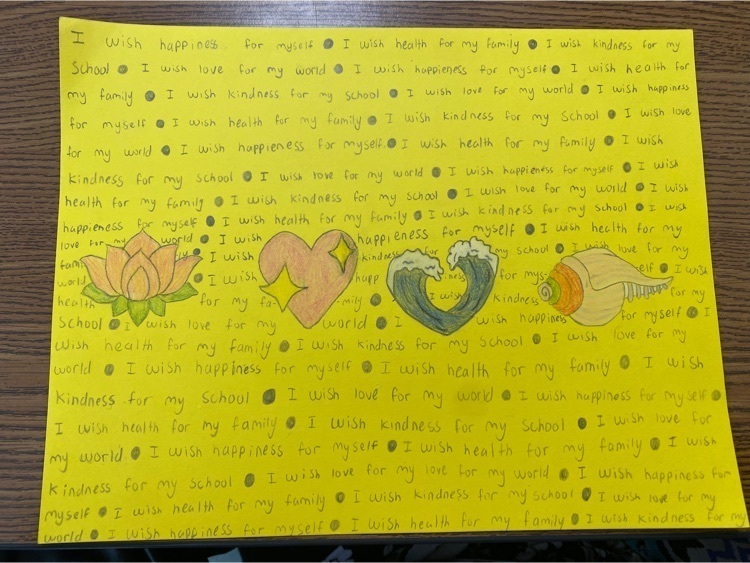 I wish happiness for myself ● I wish health for my family ● I wish kindness for my
School ● I wish love for my world ● I wish happieness for myself ● I wish health for
my family ● I wish kindness for my school ● I wish love for my world ● I wish happiness
for myself ● I wish health for my family ● I wish kindness for my School ● I wish love
for my world ● I wish happieness for myself ● I wish health for my family ● I wish
kindness for my school ● I wish love for my world ● I wish happieness for myself ● I wish
health for my family ● I wish kindness for my school ● I wish love for my world ● I wish
happieness for myself ● I wish health for my family ● I wish kindness for my school ● I wish
love for my world ● I wish happieness for myself ● I wish health for my
I wish kindness for my school ● I wish love for my
I wish happ for mys- elf ● I wish
health for my fa- mily ● I wish kindness for my
School ● I wish love for my world ● I wish happiness for myself ● I
wish health for my family ● I wish kindness for my School ● I wish love for my
world ● I wish happiness for myself ● I wish health for my family ● I wish
kindness for my school ● I wish love for my world ● I wish happiness for myself ●
I wish health for my family ● I wish kindness for my school ● I wish love for
my world ● I wish happiness for myself ● I wish health for my family ● I wish
kindness for my school ● I wish love for my love for my world ● I wish happiness for
myself ● I wish health for my family ● I wish kindness for my school ● I wish love for my
world ● I wish happiness for myself ● I wish health for my family ● I wish kindness for my